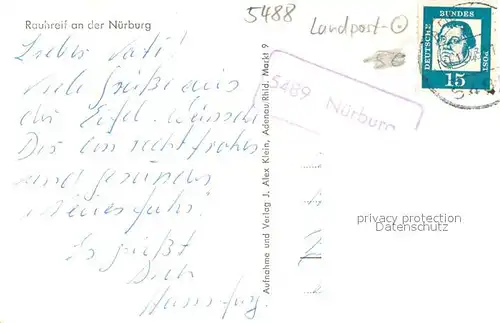 Rauhreif an der Nürburg
5488
Landpost-
5489 Nürburg
DEUTSCHE
BUNDES
POST
15
Lieber Vati!
Viele Grüße aus
der Eifel. Wünsche
Dir ein recht frohes
und gesundes
neues Jahr!
Es grüßt
Dich
Aufnahme und Verlag J. Alex Klein, Adenau/Rhld. Markt 9
privacy protection
Datenschutz